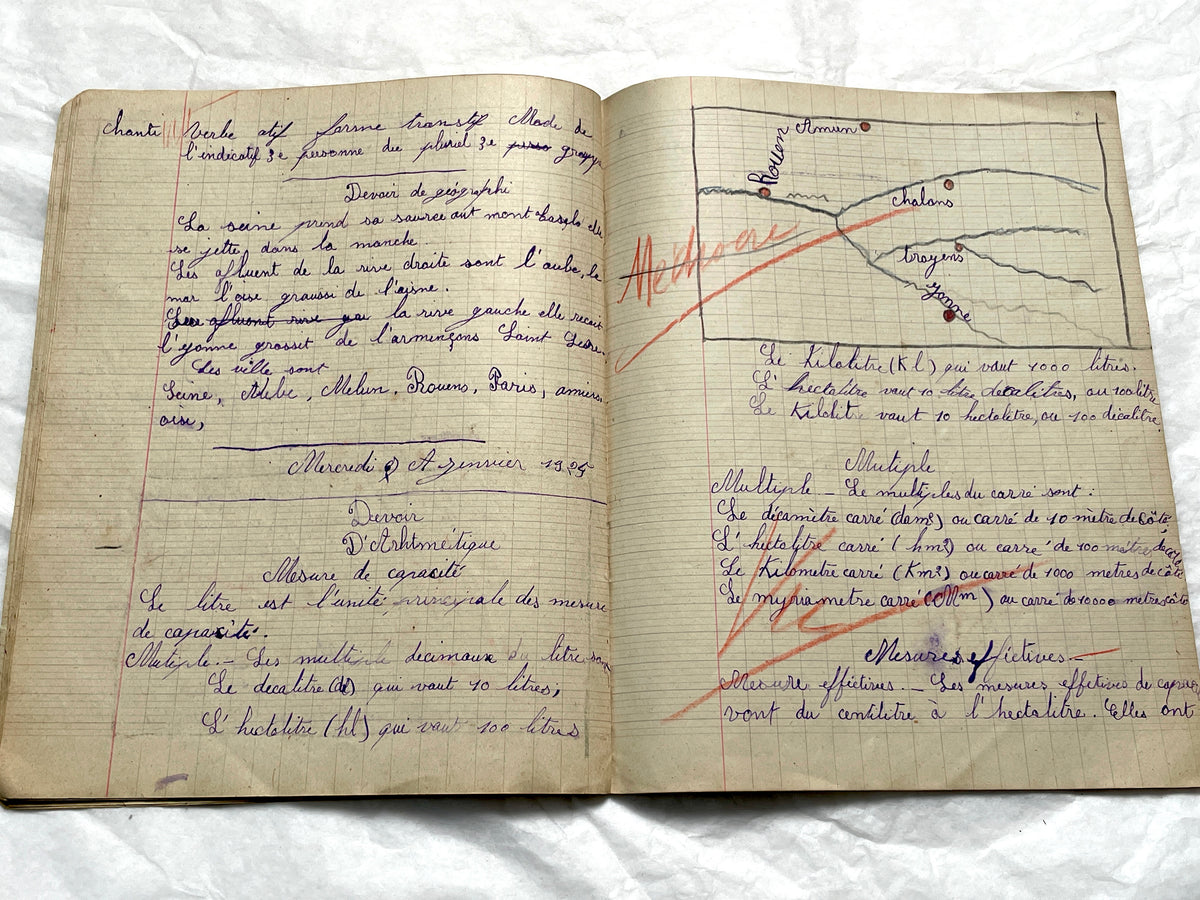 chanti Verbe atif forme transtif Mode de
l'indicatif 3e personne du pluriel 3e
Devoir de géographi
La seine prend sa source aut mont elle
se jette dans la manche
Les afluent de la rive droite sont l'aube, la
mar l'oise graussi de l'aisne.
Les afluent rive la rive gauche elle recoit
l'yonne grossit de l'armençons Saint
Les ville sont
Seine, Melun, Rouens, Paris, amiens
oise,
Mercredi A Jenvier 1925
Devoir
D'Arhtméitique
Mesure de capacité
Le litre est l'unité principale des mesure
de capacité.
Mutiple. — Les multiple décimaux du litre sont
Le decalitre (dl) qui vaut 10 litres,
L'hectolitre (hl) qui vaut 100 litres
Rouen Amien
chalons
troyens
Yonne
Mediocre
Le Kilolitre (Kl) qui vaut 1000 litres.
L'hectolitre vaut 10 litre décalitres, ou 100 litre
Le Kilolit vaut 10 hectolitre, ou 100 décalitre
Mutiple
Multiple. — Le multiples du carré sont :
Le décamètre carré (dam²) ou carré de 10 mètre de côté
L'hectolitre carré (hm²) ou carré de 100 mètres de côté
Le Kilometre carré (Km²) ou carré de 1000 metres de côté
Le myriametre carré (Mm) ou carré de 10000 metres côté
Vu
Mesures effictives —
Mesure effictives. — Les mesures effetives de capacité
vont du centilitre à l'hectolitre. Elles ont